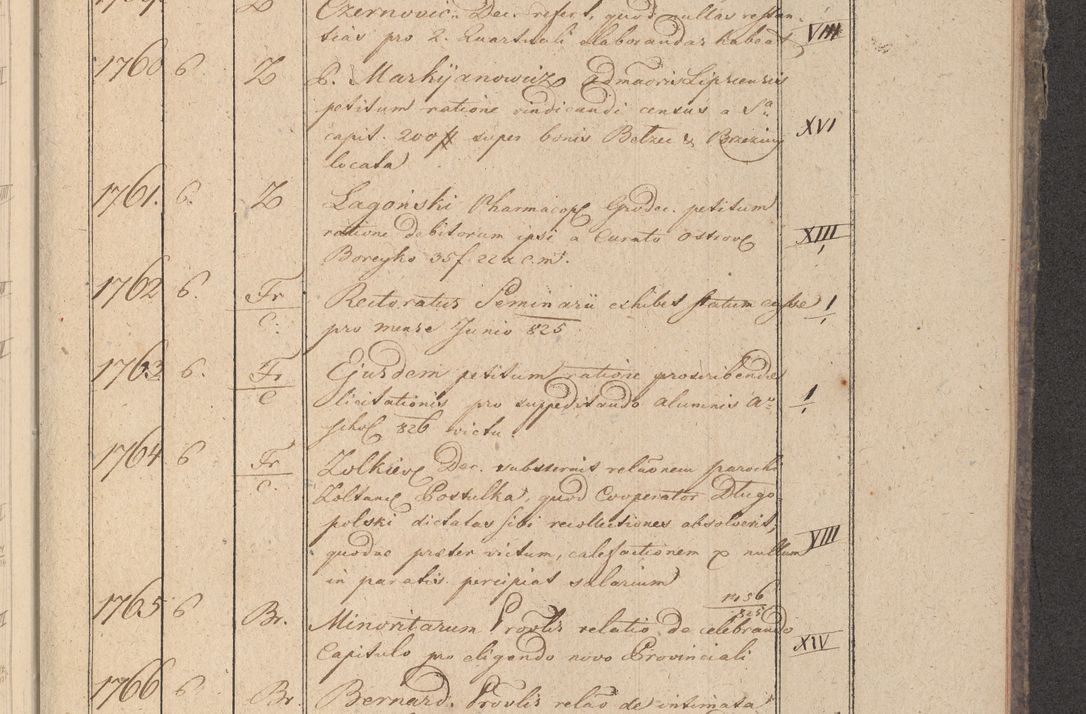 Czernovic. Dec. refert, quod nullas restan-
tias pro 2. Quartuali elaborandas habeat VIII
1760 6. Z G. Markijanowicz Admaoris Lipscensis
petitum ratione vindicandi census a Sa
capit. 200 f super bonis Betzec & Brzeziny XVI
locata
1761. 6. Z Lagoński Pharmacop Grodec. petitum
ratione debitorum ipsi a Curato Ostrov XIII
Boreyko 35 f. 22 x C.M.
1762 6. Fr/C. Rectoratus Seminarii exhibet statum cassae 1
pro mense Junio 825
1763 6. Fr/C Ejusdem petitum ratione proscribendae
licitationis pro suppeditando alumnis a 1
schol 826 victu.
1764 6 Fr/C. Zolkiev Dec. substernit relationem parochi
Zoltanc Postulka, quod Cooperator Dlugo-
polski dictatas sibi recollectiones absolverit,
quodve praeter victum, calefactionem nullum VIII
in paratis percipiat salarium
1765 6 Br. Minoritarum Provlis relatio de celebrando 1456/825
Capitulo pro eligendo novo Provinciali XIV
1766 6 Br. Bernard. Provlis relao de intimata